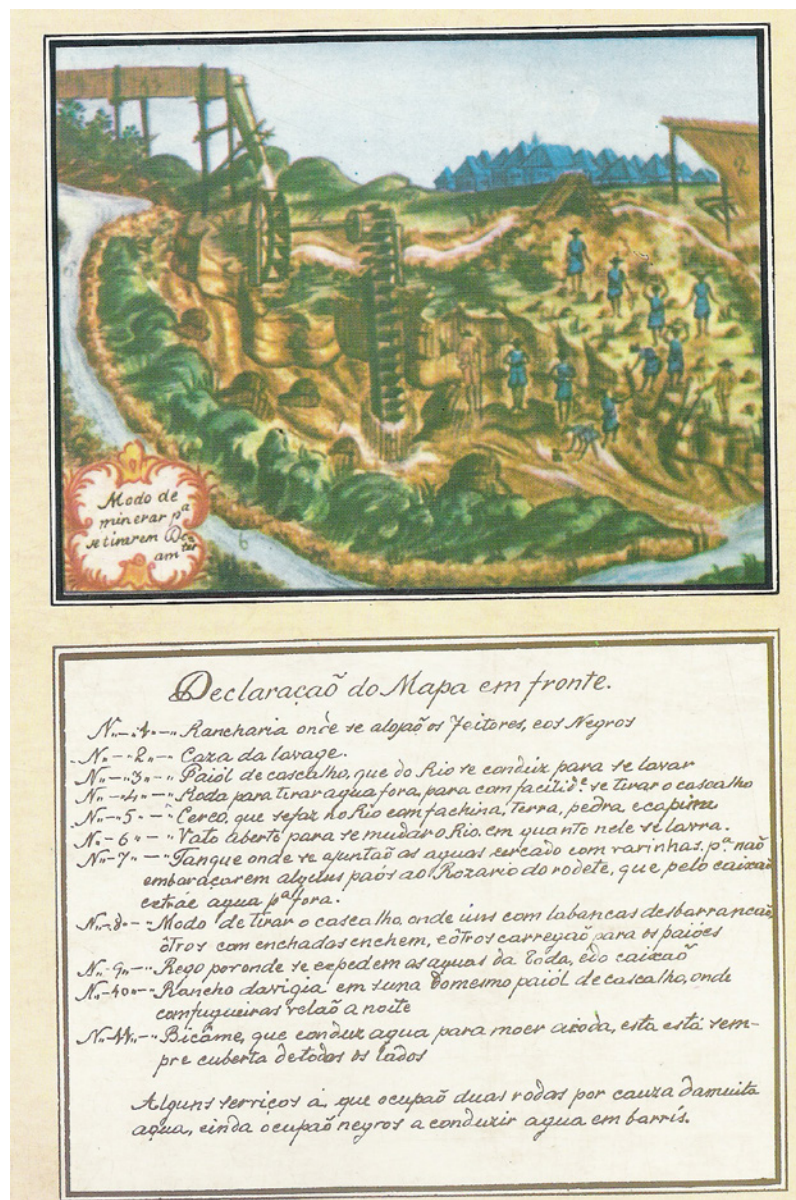 Modo de
minerar pª
se tirarem
Declaraçaõ do Mapa em fronte.
N.. - 1 - .. Rancharia onde se alojaõ os Feitores, eos Negros
N.. - 2 .. - Caza da lavage.
N.. - .. 3 .. - .. Paiól de cascalho, que do Rio se conduz para se lavar
N.. - 4 .. - .. Roda para tirar agua fora, para com facilidᵉ se tirar o cascalho
N.. - .. 5 .. - .. Cerco, que sefaz no Rio com fachina, Terra, pedra, e capim
N.. - 6 .. - .. Valo aberto para se mudar o Rio, em quanto nele se lavra.
N.. - 7 .. - .. Tanque onde se ajuntaõ as aguas cercado com varinhas, pª naõ
embaraçarem alguns paós ao Rozario do rodete, que pelo caixaõ
extrae agua pª fora.
N.. - 8 - .. Modo de tirar o cascalho, onde uns com labancas desbarrancaõ,
ôtros com enchadas enchem, e ôtros carregaõ para os paióes
N.. - 9 .. - .. Rego por onde se expedem as aguas da Roda, edo caixaõ
N.. - 10 - .. Rancho davigia em sima domesmo paiól de cascalho, onde
com fugueiras velaõ a noite
N.. - 11 .. - .. Bicâme, que conduz agua para moer aroda, esta está sem-
pre cuberta de todos os lados
Alguns serviços á, que ocupaõ duas rodas por cauza damuita
agua, einda ocupaõ negros a conduzir agua em barrís.
2
6